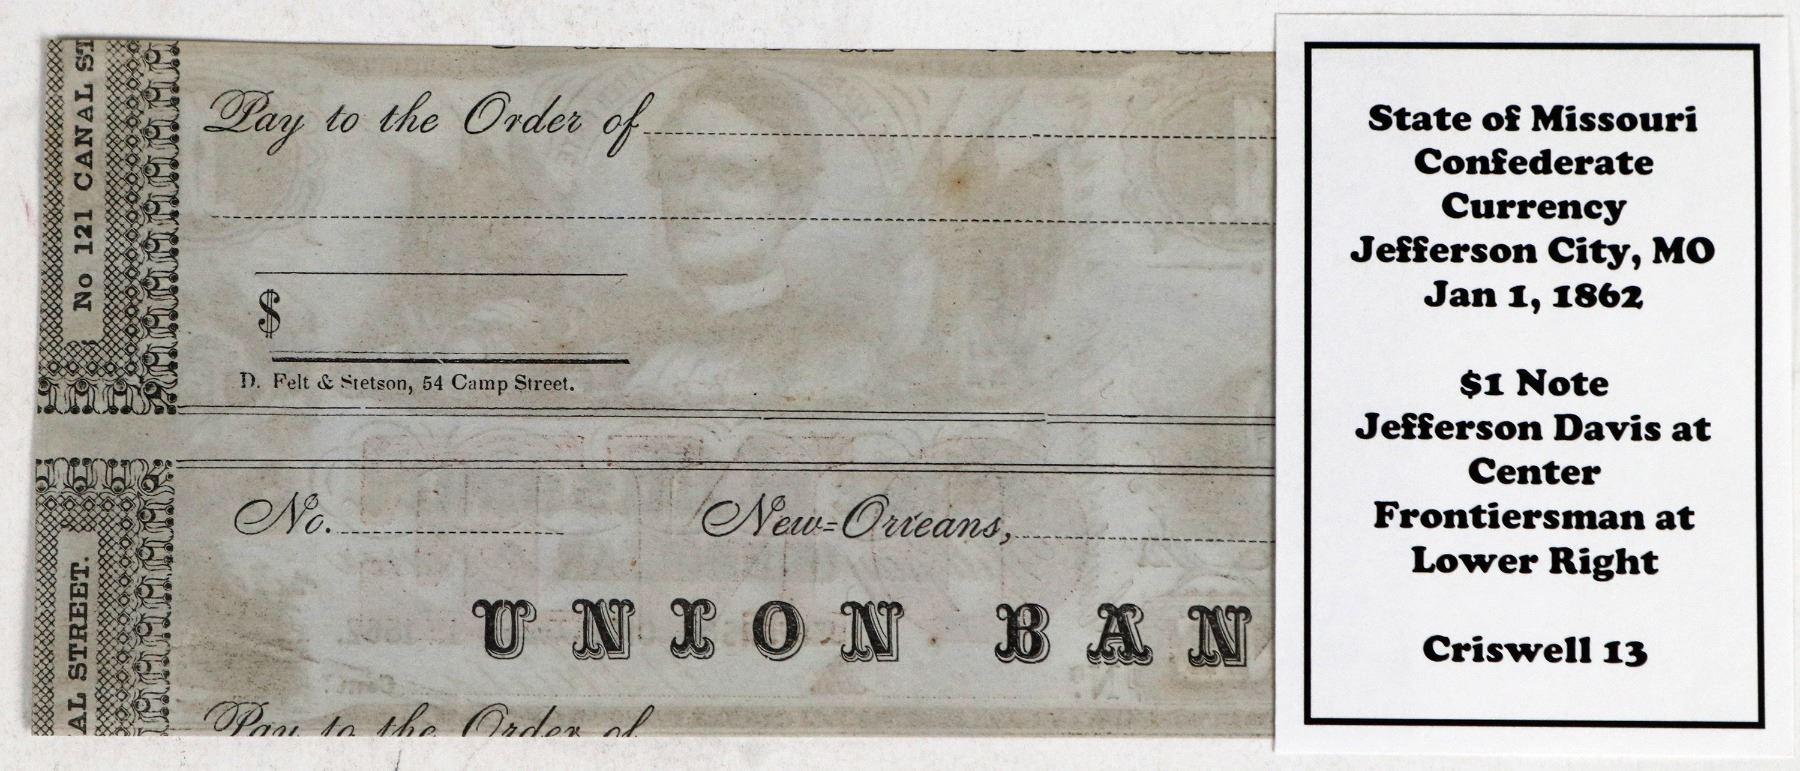 No 121 CANAL ST
Pay to the Order of
$
D. Felt & Stetson, 54 Camp Street.
AL STREET.
No.
New-Orleans,
UNION BAN
Pay to the Order of
State of Missouri
Confederate
Currency
Jefferson City, MO
Jan 1, 1862
$1 Note
Jefferson Davis at
Center
Frontiersman at
Lower Right
Criswell 13